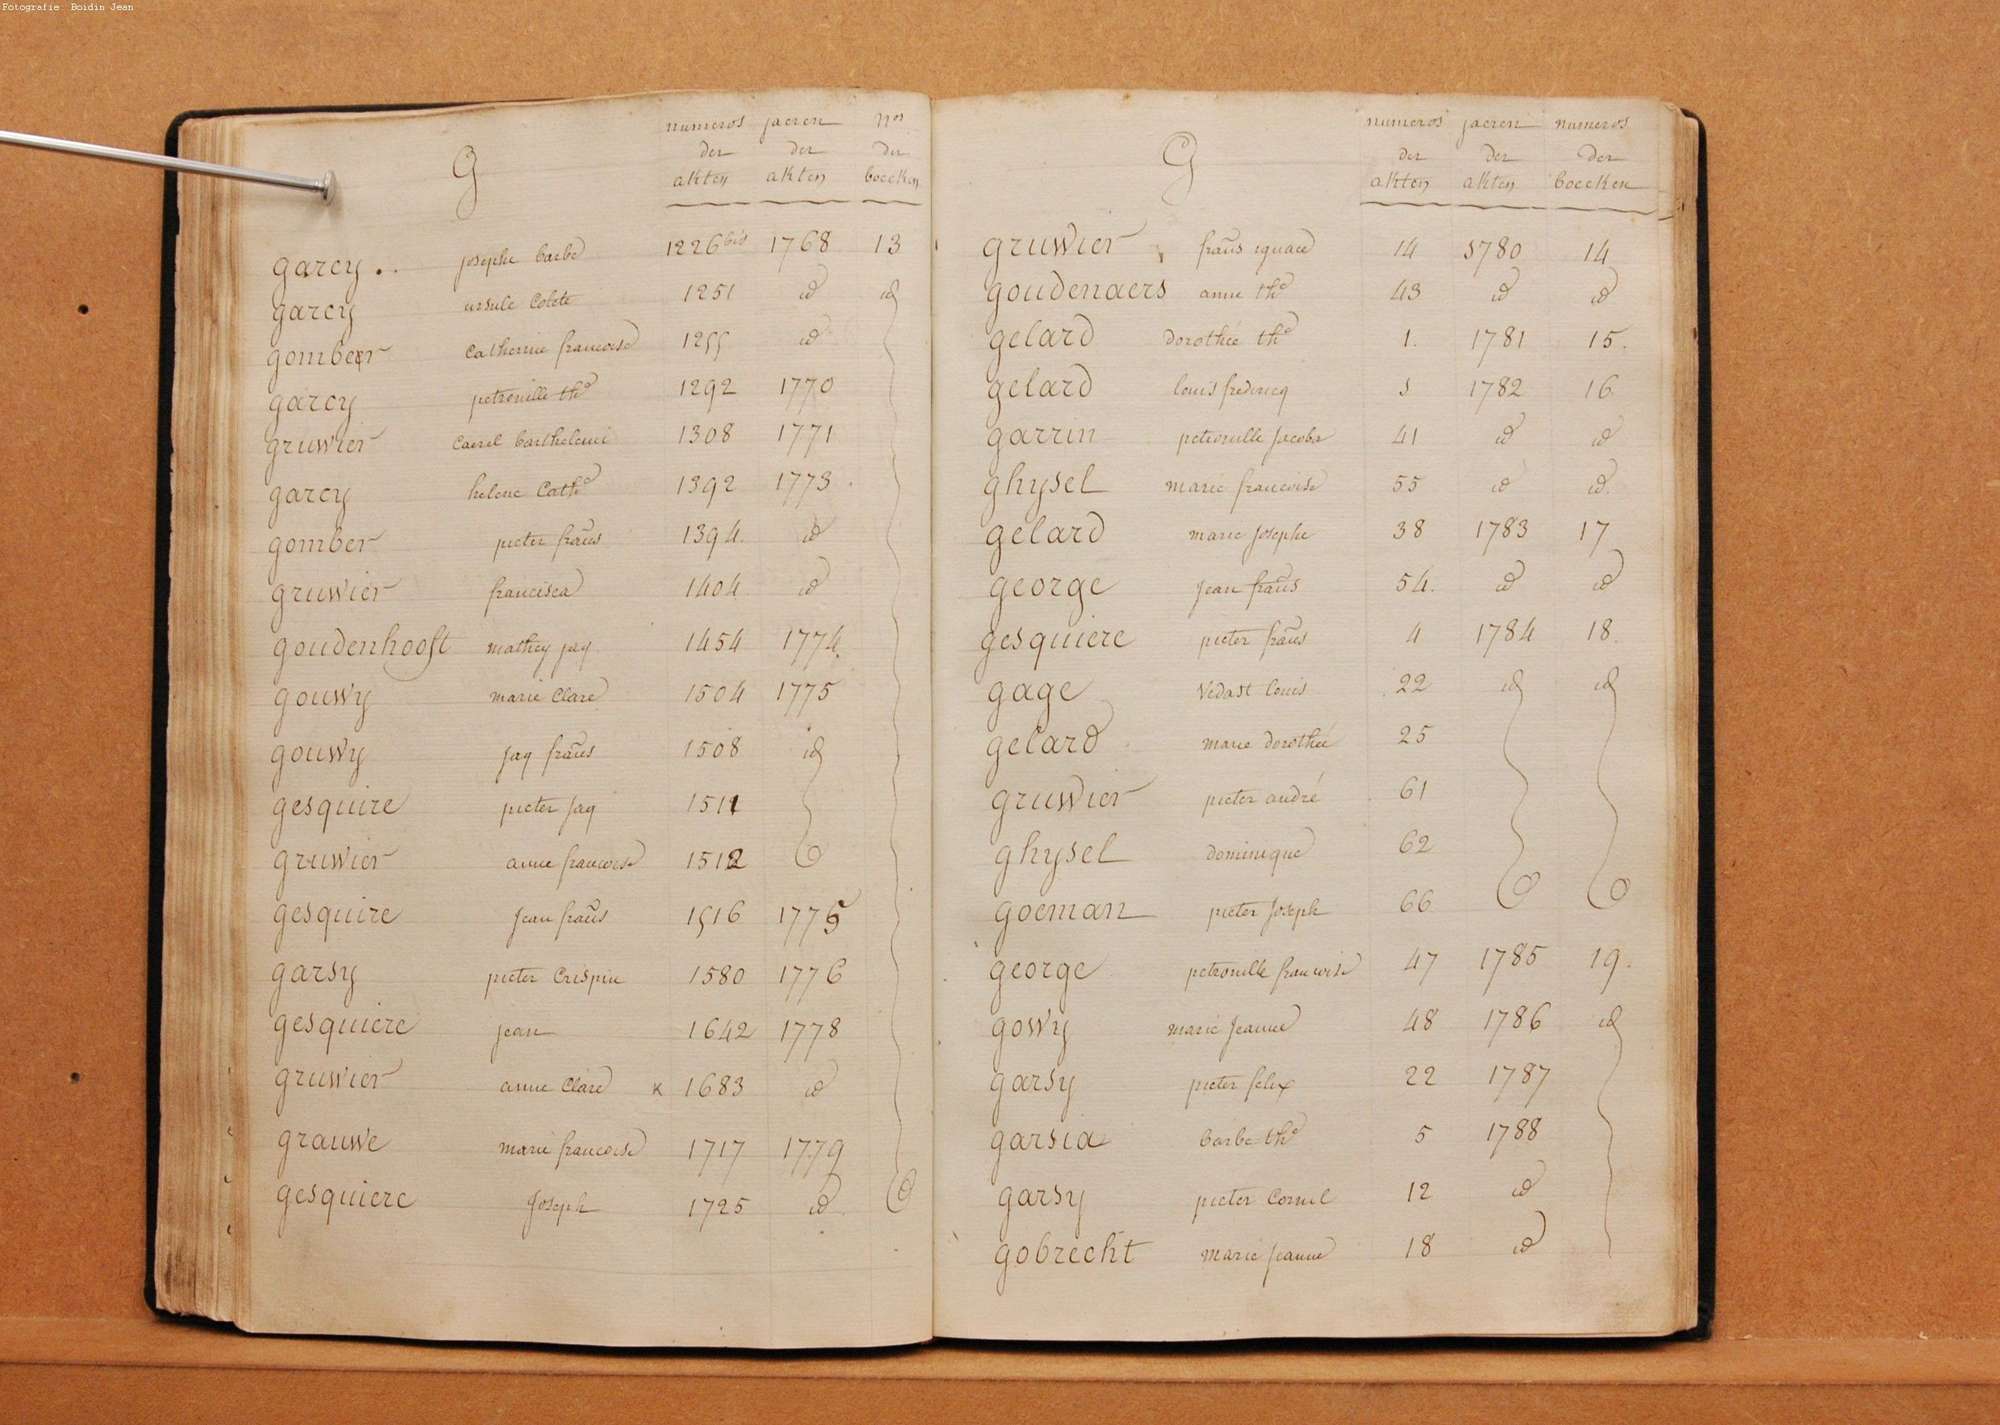 Fotografie Boidin Jean
G numeros jaeren Nos
der der der
akten akten boecken
garcy .. josephe barbe 1226 bis 1768 13
garcy ursule Colete 1251 id id
gomber Catherine francoise 1255 id
garcy petronille the 1292 1770
gruwier Carel bartholomi 1308 1771
garcy helene Cathe 1392 1773
gomber pieter frans 1394 id
gruwier francisca 1404 id
goudenhooft mathey jaq 1454 1774
gouwy marie Clare 1504 1775
gouwy jaq frans 1508 id
gesquire pieter jaq 1511
gruwier anne francoise 1512
gesquire jean frans 1516 1775
garsy pieter Crispin 1580 1776
gesquiere jean 1642 1778
gruwier anne Clare x 1683 id
grauwe marie francoise 1717 1779
gesquiere Joseph 1725 id
G numeros jaeren numeros
der der der
akten akten boecken
gruwier frans ignace 14 1780 14
goudenaers anne the 43 id id
gelard dorothée the 1. 1781 15.
gelard louis fredericq 1 1782 16
garrin petronille jacoba 41 id id
ghysel marie francoise 55 id id
gelard marie josephe 38 1783 17
george jean frans 54. id id
gesquiere pieter frans 4 1784 18
gage vedast louis 22 id id
gelard marie dorothée 25
gruwier pieter andré 61
ghysel dominique 62
goeman pieter joseph 66
george petronille francoise 47 1785 19.
gowy marie jeanne 48 1786 id
garsy pieter felix 22 1787
garsia barbe the 5 1788
garsy pieter Cornil 12 id
gobrecht marie jeanne 18 id